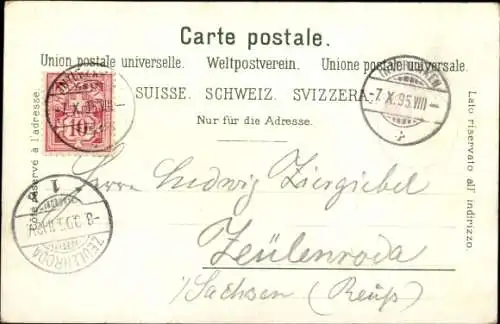 Carte postale.
Union postale universelle. Weltpostverein. Unione postale universale.
SUISSE. SCHWEIZ. SVIZZERA.
Nur für die Adresse.
Côté réservé à l'adresse.
Lato riservato all' indirizzo.
10
INTERLAKEN
-7.X.95.VIII-
Herrn Ludwig Ziergiebel
Zeülenroda
i/Sachsen (Reuß)
ZEULENRODA
1